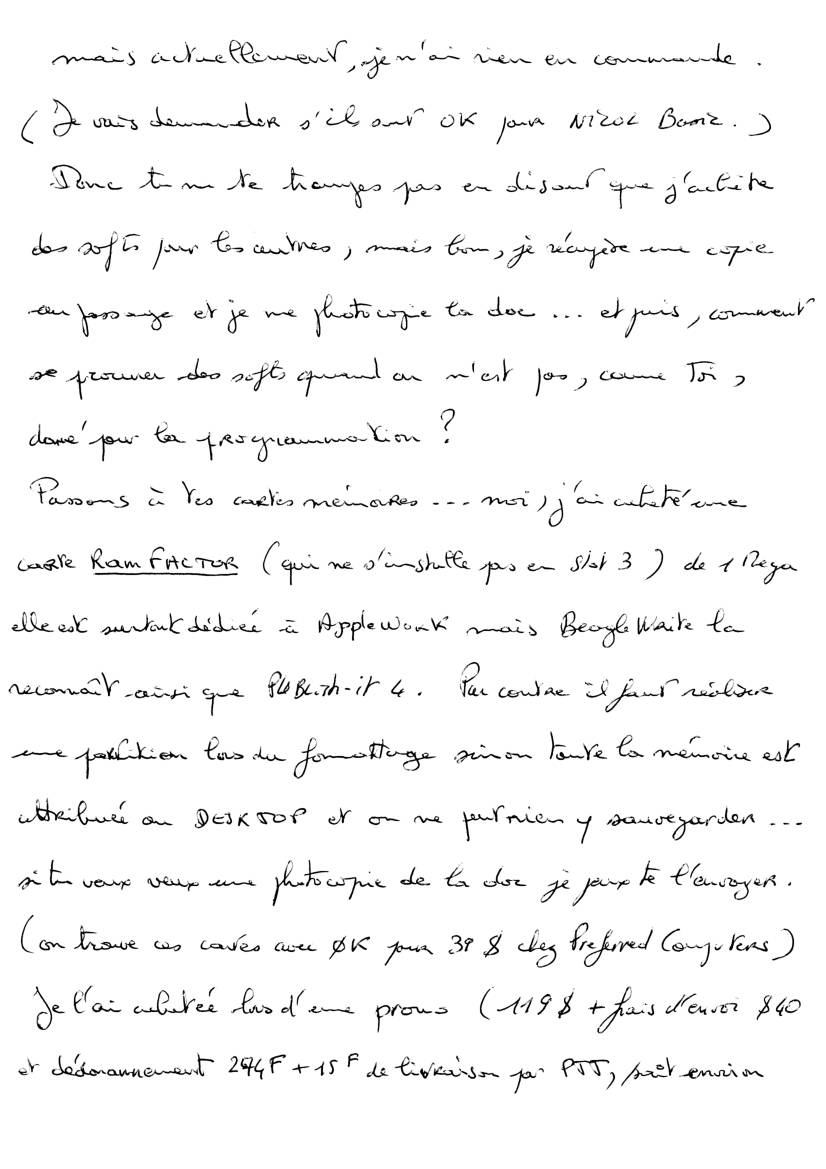 mais actuellement, je n'ai rien en commande.
(Je vais demander s'ils sont OK pour Basic.)
Donc tu ne te trompes pas en disant que j'achète
des softs pour les autres, mais bon, je récupère une copie
au passage et je me photocopie la doc ... et puis, comment
se procurer des softs quand on n'est pas, comme Toi,
doué pour la programmation ?
Passons à tes cartes mémoires ... moi, j'ai acheté une
carte Ram FACTOR (qui ne s'installe pas en slot 3) de 1 Mega
elle est surtout dédicé à AppleWork mais Beagle Write la
reconnaît ainsi que Publish-it 4. Par contre il faut réaliser
une partition lors du formattage sinon toute la mémoire est
attribuée au DESKTOP et on ne peut rien y sauvegarder ...
si tu veux veux une photocopie de la doc je peux te l'envoyer.
(on trouve ces cartes avec ØK pour 39 $ chez Preferred Computers)
Je l'ai achetée lors d'une promo (119 $ + frais d'envoi $40
et dédouannement 274 F + 15 F de livraison par PTT, soit environ